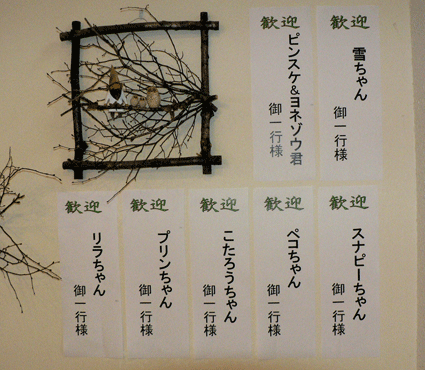 歓迎
雪ちゃん
御一行様
歓迎
ピンスケ&ヨネゾウ君
御一行様
歓迎
スナピーちゃん
御一行様
歓迎
ペコちゃん
御一行様
歓迎
こたろうちゃん
御一行様
歓迎
プリンちゃん
御一行様
歓迎
リラちゃん
御一行様